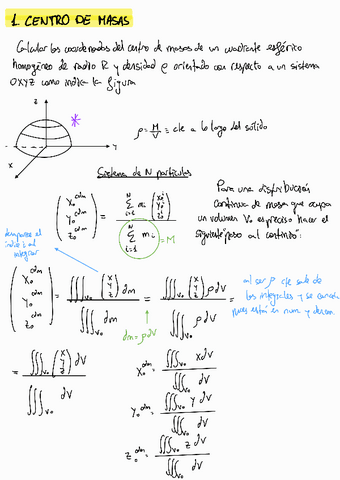 1. CENTRO DE MASAS
Calcular las coordenadas del centro de masas de un cuadrante esférico
homogéneo de radio R y densidad ρ orientado con respecto a un sistema
OXYZ como indica la figura
z
y
x
ρ = M/V = cte a lo largo del sólido
Sistema de N partículas
(x₀ᶜᵈᵐ y₀ᶜᵈᵐ z₀ᶜᵈᵐ) = ∑ᵢ₌₁ᴺ mᵢ (x₀ⁱ y₀ⁱ z₀ⁱ) / ∑ᵢ₌₁ᴺ mᵢ = M
Para una distribución
continua de masa que ocupa
un volumen V₀ es preciso hacer el
siguiente paso al continuo:
desaparece el
índice i al
integrar
(x₀ᶜᵈᵐ y₀ᶜᵈᵐ z₀ᶜᵈᵐ) = ∭ᵥ₀ (x y z) dm / ∭ᵥ₀ dm = ∭ᵥ₀ (x y z) ρ dV / ∭ᵥ₀ ρ dV =
dm = ρ dV
al ser ρ cte sale de
las integrales y se cancela
pues está en num y denom
= ∭ᵥ₀ (x y z) dV / ∭ᵥ₀ dV
x₀ᶜᵈᵐ = ∭ᵥ₀ x dV / ∭ᵥ₀ dV
y₀ᶜᵈᵐ = ∭ᵥ₀ y dV / ∭ᵥ₀ dV
z₀ᶜᵈᵐ = ∭ᵥ₀ z dV / ∭ᵥ₀ dV